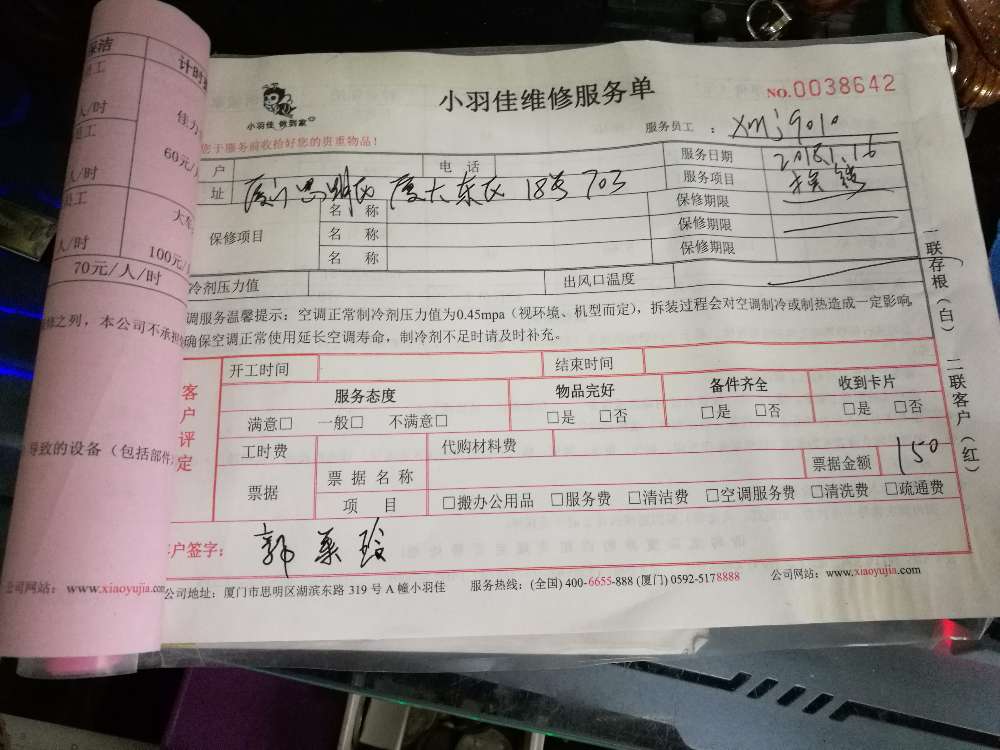 保洁
计时
工
人/时
佳力
员工
60元/
人/时
员工
大车
人/时
100元/
70元/人/时
之列,本公司不承担
导致的设备(包括部件
公司网站: www.xiaoyujia.com
小羽佳 做到家
小羽佳维修服务单
NO.0038642
服务员工 : xmj9010
您于服务前收拾好您的贵重物品!
户
电 话
服务日期
2018.1.16
址
厦门思明区厦大东区18号703
服务项目
换锁
保修项目
名 称
保修期限
名 称
保修期限
名 称
保修期限
冷剂压力值
出风口温度
调服务温馨提示:空调正常制冷剂压力值为0.45mpa(视环境、机型而定),拆装过程会对空调制冷或制热造成一定影响,
确保空调正常使用延长空调寿命,制冷剂不足时请及时补充。
客户评定
开工时间
结束时间
服务态度
物品完好
备件齐全
收到卡片
满意□ 一般□ 不满意□
□是 □否
□是 □否
□是 □否
工时费
代购材料费
票据
票据名称
票据金额
150
项 目
□搬办公用品 □服务费 □清洁费 □空调服务费 □清洗费 □疏通费
客户签字:
公司地址:厦门市思明区湖滨东路 319 号 A 幢小羽佳
服务热线:(全国) 400-6655-888 (厦门) 0592-5178888
公司网站:www.xiaoyujia.com
一联存根(白) 二联客户(红)